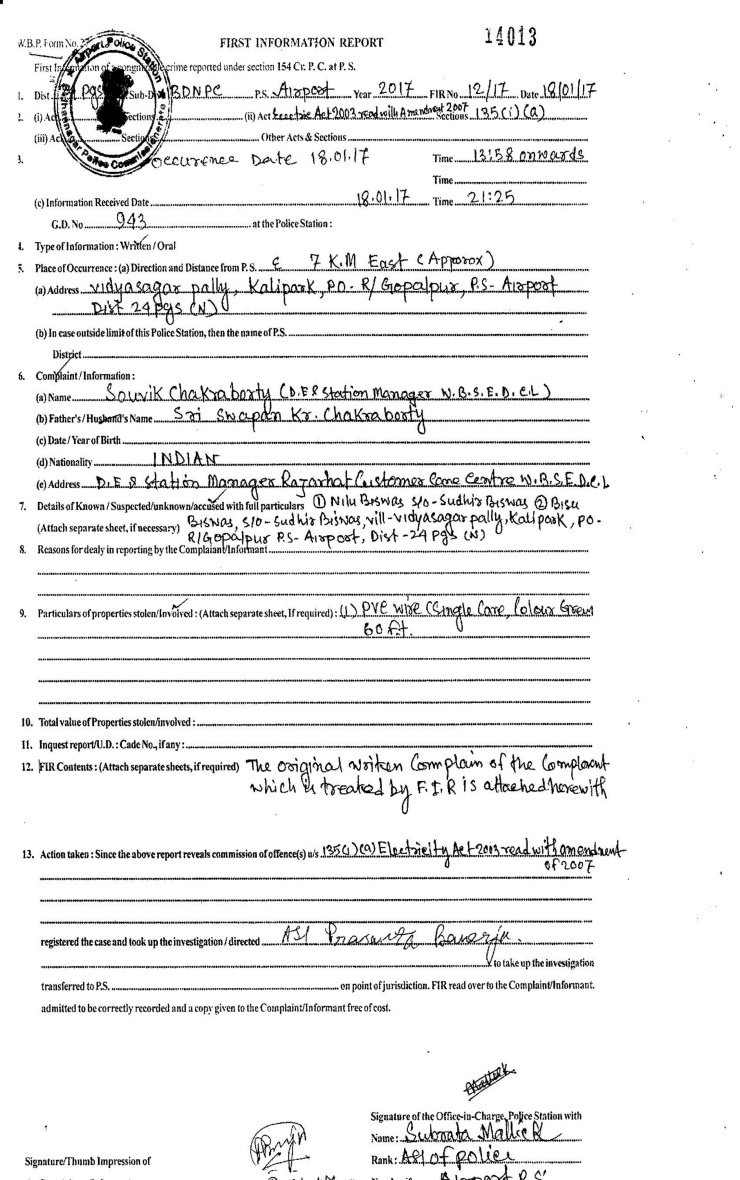 14013
W.B.P. Form No. 27
FIRST INFORMATION REPORT
First Information of a cognizable crime reported under section 154 Cr. P. C. at P. S.
1. Dist. Pgs Sub-Div BDNPC P.S. Airport Year 2017 FIR No 12/17 Date 18/01/17
2. (i) Act Sections (ii) Act Electric Act 2003 read with Amendment 2007 Sections 135(i)(a)
(iii) Act Sections Other Acts & Sections
3. Occurence Date 18.01.17 Time 13:58 onwards
Time
(c) Information Received Date 18.01.17 Time 21:25
G.D. No 943 at the Police Station :
4. Type of Information : Written / Oral
5. Place of Occurrence : (a) Direction and Distance from P. S. 7 K.M East (Approx)
(a) Address vidyasagar pally, Kalipark, PO- R/Gopalpur, P.S- Airport
Dist 24 Pgs (N)
(b) In case outside limit of this Police Station, then the name of P.S.
District
6. Complaint / Information :
(a) Name Souvik Chakraborty (D.E & Station Manager W.B.S.E.D.C.L)
(b) Father's / Husband's Name Sri Swapan Kr. Chakraborty
(c) Date / Year of Birth
(d) Nationality INDIAN
(e) Address D.E & Station Manager Rajarhat Customer Care Centre W.B.S.E.D.C.L
7. Details of Known / Suspected/unknown/accused with full particulars ① Nilu Biswas S/o- Sudhir Biswas ② Bisu
(Attach separate sheet, if necessary) Biswas, S/o- Sudhir Biswas, vill- vidyasagar pally, Kalipark, PO-
R/Gopalpur P.S- Airport, Dist -24 Pgs (N)
8. Reasons for dealy in reporting by the Complaiant/Informant
9. Particulars of properties stolen/Involved : (Attach separate sheet, If required) : (1) PVC wire (Single Core, Colour Green
60 ft.
10. Total value of Properties stolen/involved :
11. Inquest report/U.D. : Cade No., if any :
12. FIR Contents : (Attach separate sheets, if required) The original written Complain of the Complanent
which is treated by F.I.R is attached herewith
13. Action taken : Since the above report reveals commission of offence(s) u/s 135(1)(a) Electricity Act 2003 read with amendment
of 2007
registered the case and took up the investigation / directed ASI Prasanta Banerjee.
to take up the investigation
transferred to P.S. on point of jurisdiction. FIR read over to the Complaint/Informant.
admitted to be correctly recorded and a copy given to the Complaint/Informant free of cost.
Signature of the Office-in-Charge, Police Station with
Name : Subrata Mallick
Rank : ASI of police
Signature/Thumb Impression of
Airport P.S.
Airport Police Station
Bidhannagar Police Commissionerate